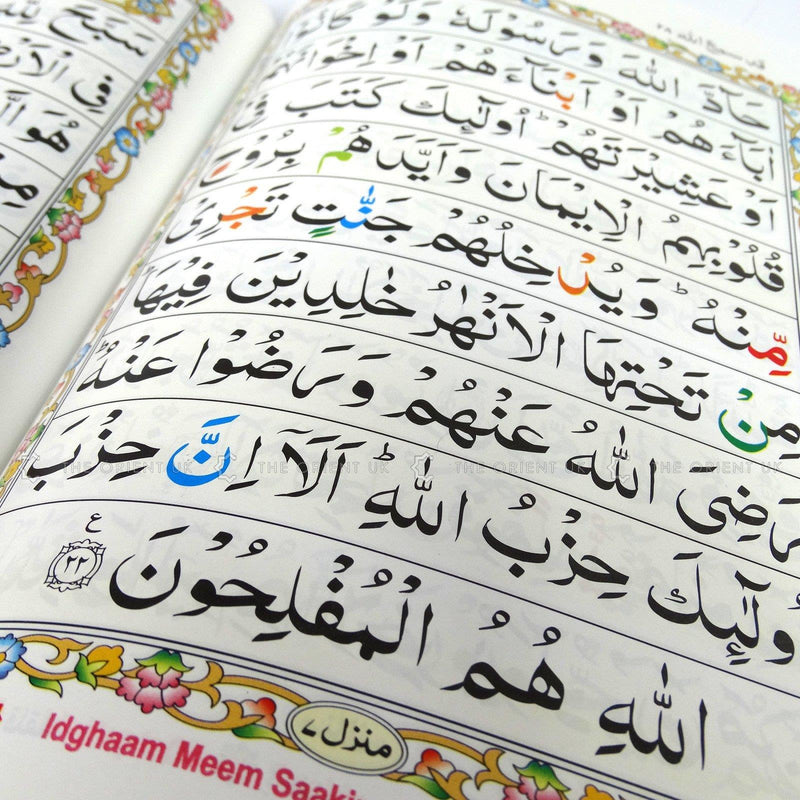 قد سمع الله ٢٨
حَآدَّ اللّٰهَ وَرَسُوْلَهٗ وَلَوْ كَانُوْۤا
اٰبَآءَهُمْ اَوْ اَبْنَآءَهُمْ اَوْ اِخْوَانَهُمْ
اَوْ عَشِيْرَتَهُمْ ؕ اُولٰٓئِكَ كَتَبَ فِىْ
قُلُوْبِهِمُ الْاِيْمَانَ وَاَيَّدَهُمْ بِرُوْحٍ
مِّنْهُ ؕ وَيُدْخِلُهُمْ جَنّٰتٍ تَجْرِىْ
مِنْ تَحْتِهَا الْاَنْهٰرُ خٰلِدِيْنَ فِيْهَا ؕ
رَضِىَ اللّٰهُ عَنْهُمْ وَرَضُوْا عَنْهُ ؕ
اُولٰٓئِكَ حِزْبُ اللّٰهِ ؕ اَلَاۤ اِنَّ حِزْبَ
اللّٰهِ هُمُ الْمُفْلِحُوْنَ ٢٢ ع
منزل ٧
Idghaam Meem Saakin
سَبَّحَ لِلّٰهِ
فِى الْاَرْضِ
هُوَ الَّ
مِنْ
THE ORIENT UK THE ORIENT UK THE ORIENT UK THE ORIENT UK